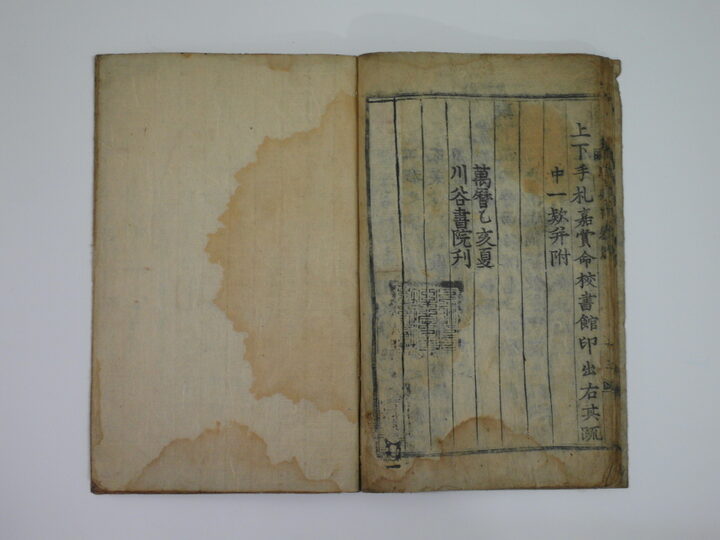 上下手札嘉賞命校書館印出右其疏
中一欵幷附
萬曆乙亥夏
川谷書院刋